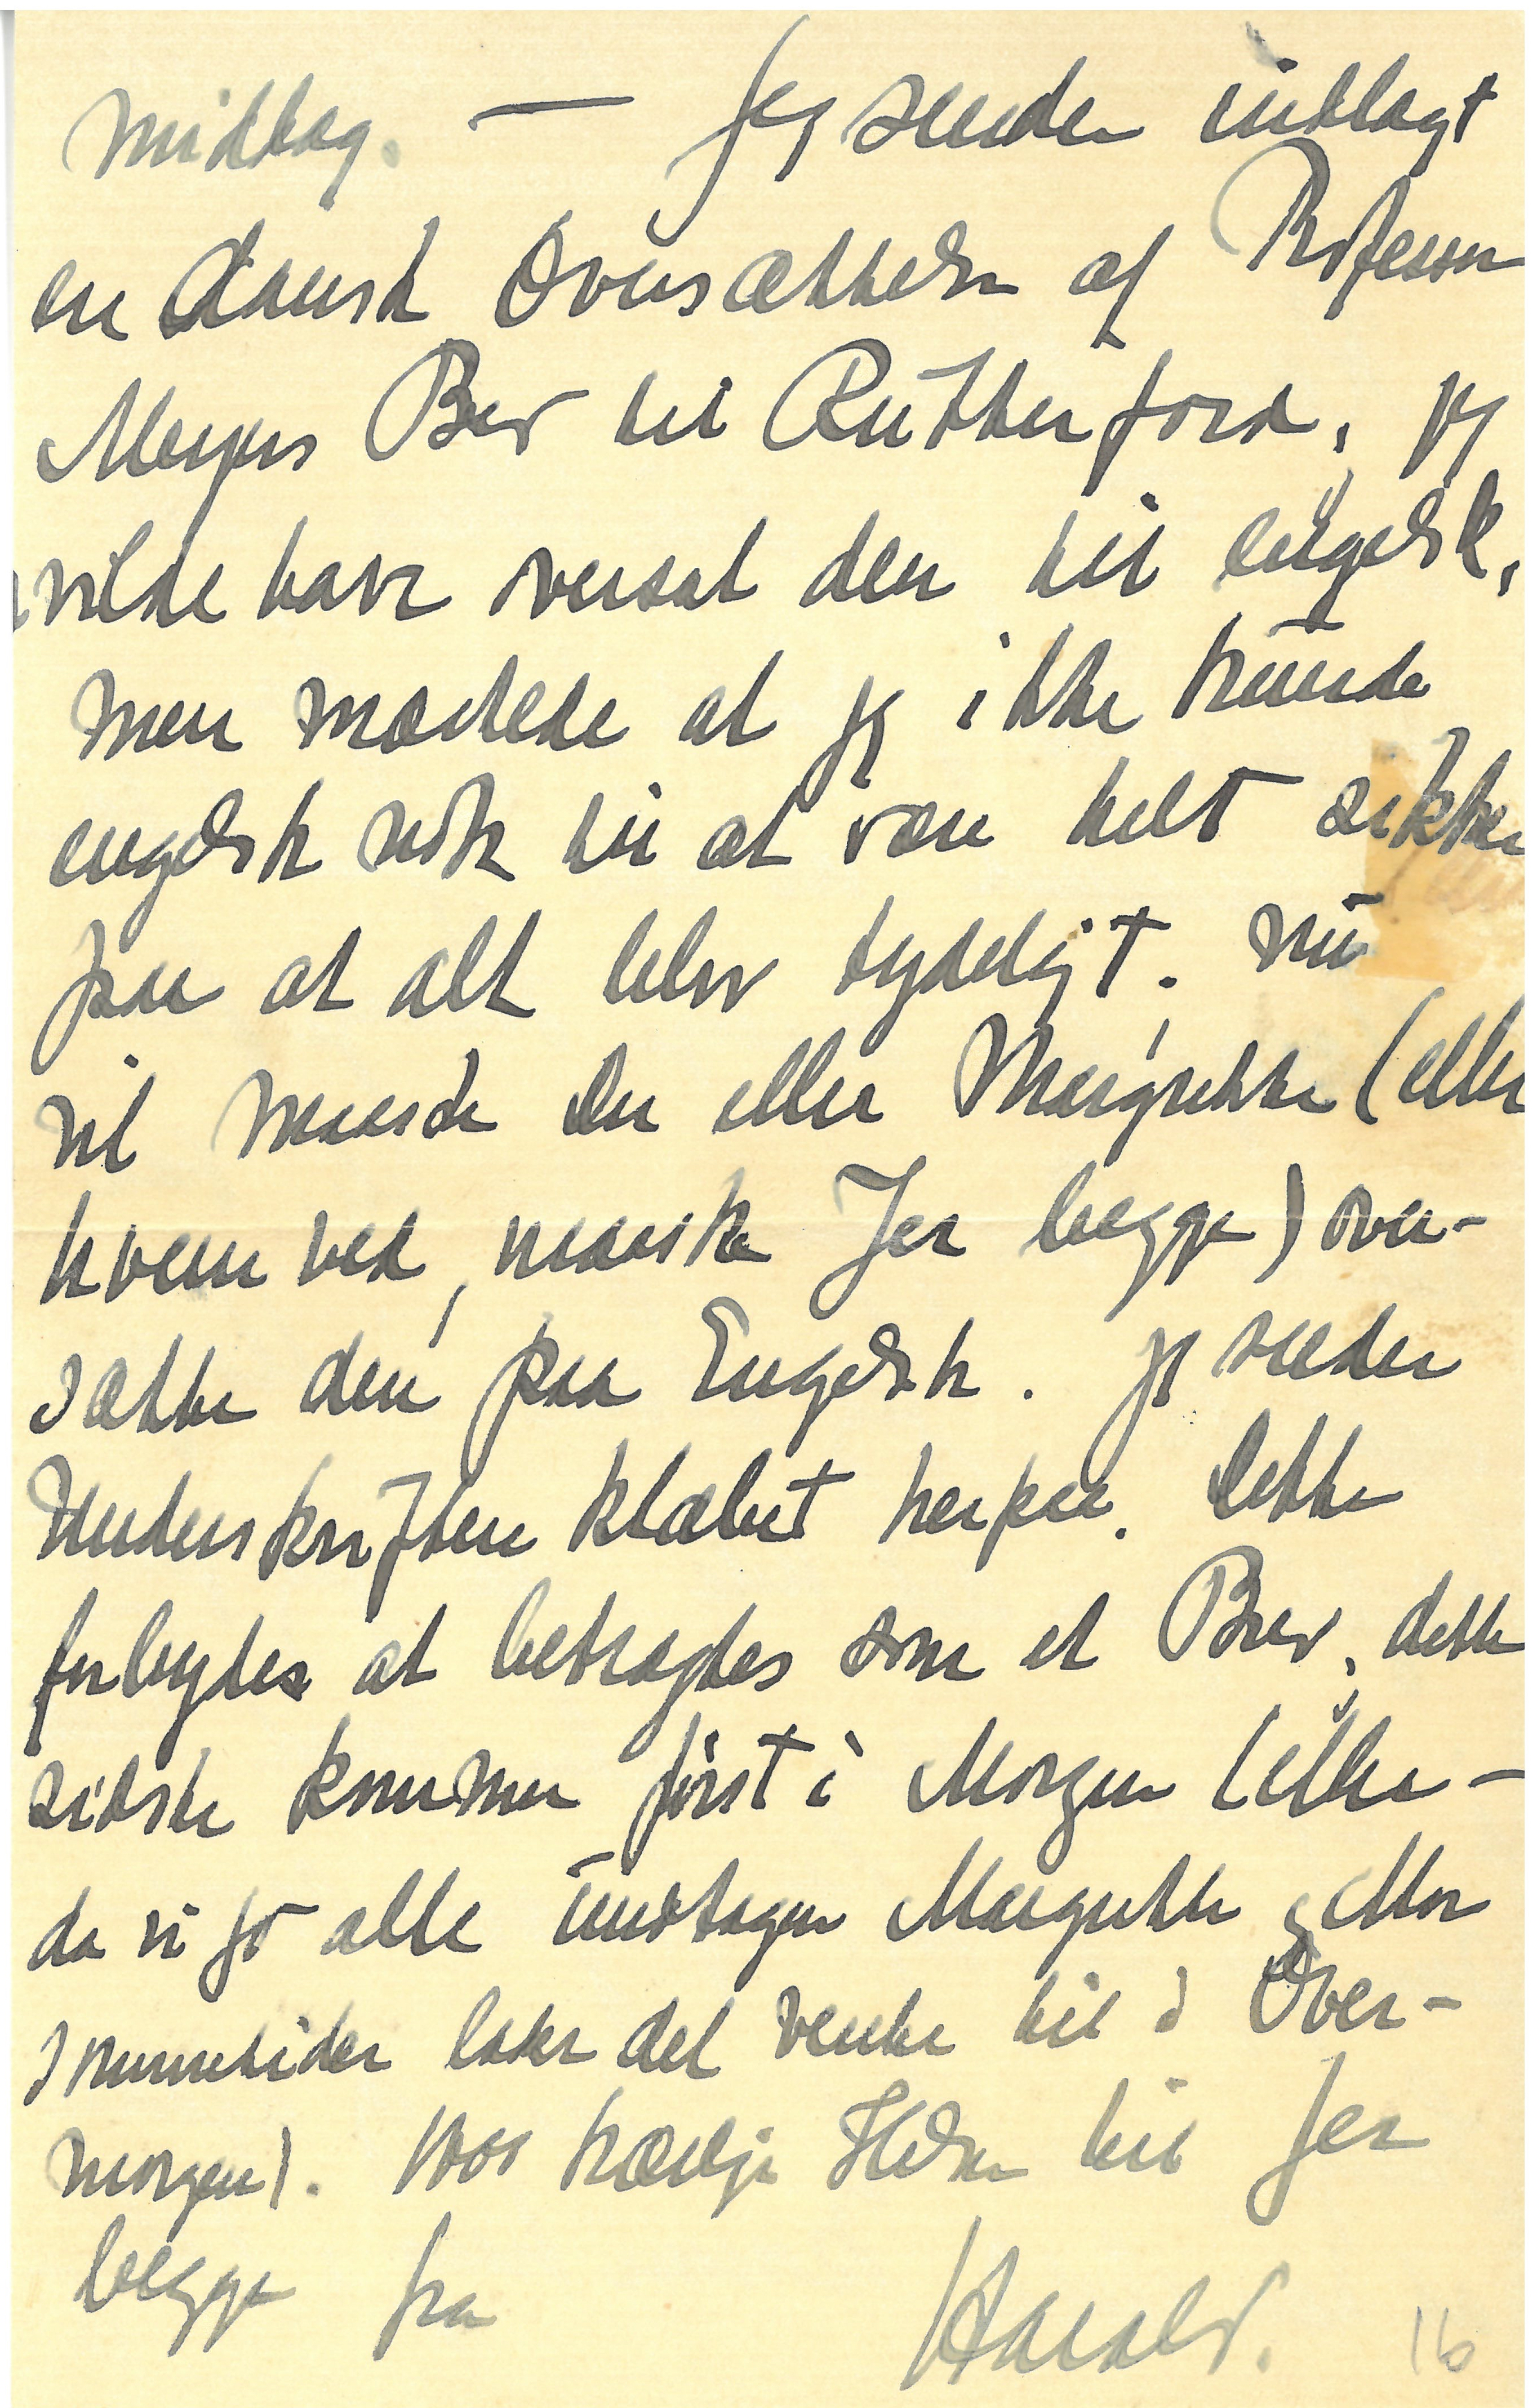 Middag. — Jeg sender indlagt
en dansk Oversættelse af Professor
Meyers Brev til Rutherford, jeg
vilde have oversat den til engelsk,
men mærkede at jeg ikke kunde
engelsk nok til at være helt sikker
paa at alt blev tydeligt. Nu
vil maaske Du eller Margrethe (eller
hvem ved, maaske Jer begge) over-
sætte den paa Engelsk. Jeg sender
Underskriften klæbet herpaa. Dette
forbydes at betragtes som et Brev, dette
sidste kommer først i Morgen (eller -
da vi jo alle undtagen Margrethe og Mor
sommetider lader det vente til i Over-
morgen). 1000 kærlige Hilsner til Jer
begge fra
Harald.
16